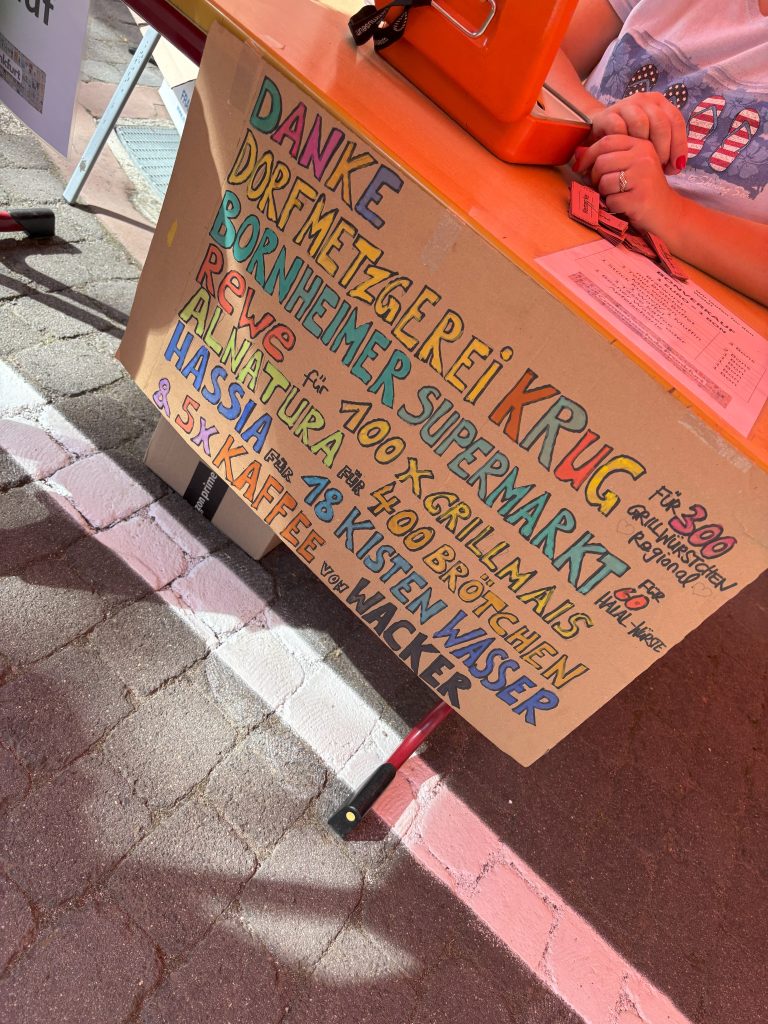 DANKE
DORFMETZGEREI KRUG FÜR 300
GRILLWÜRSTCHEN
regional
BORNHEIMER SUPERMARKT FÜR 60
HALAL-WÜRSTE
REWE für 100 X GRILLMAIS
ALNATURA FÜR 400 BRÖTCHEN
HASSIA FÜR 18 KISTEN WASSER
& 5X KAFFEE VON WACKER
BONVERKAUF